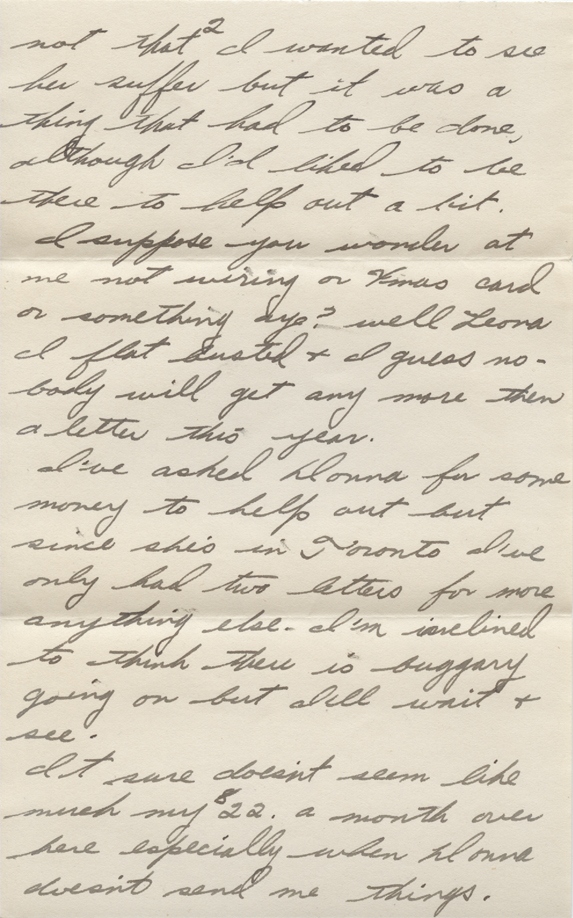 2
not that I wanted to see
her suffer but it was a
thing that had to be done,
although I'd liked to be
there to help out a bit.
I suppose you wonder at
me not wiring or Xmas card
or something aye? well Leona
I flat busted + I guess no-
body will get any more then
a letter this year.
I've asked Donna for some
money to help out but
since she's in Toronto I've
only had two letters for more
anything else. I'm inclined
to think there is buggary
going on but I'll wait +
see.
It sure doesn't seem like
much my $22. a month over
here especially when Donna
doesn't send me things.